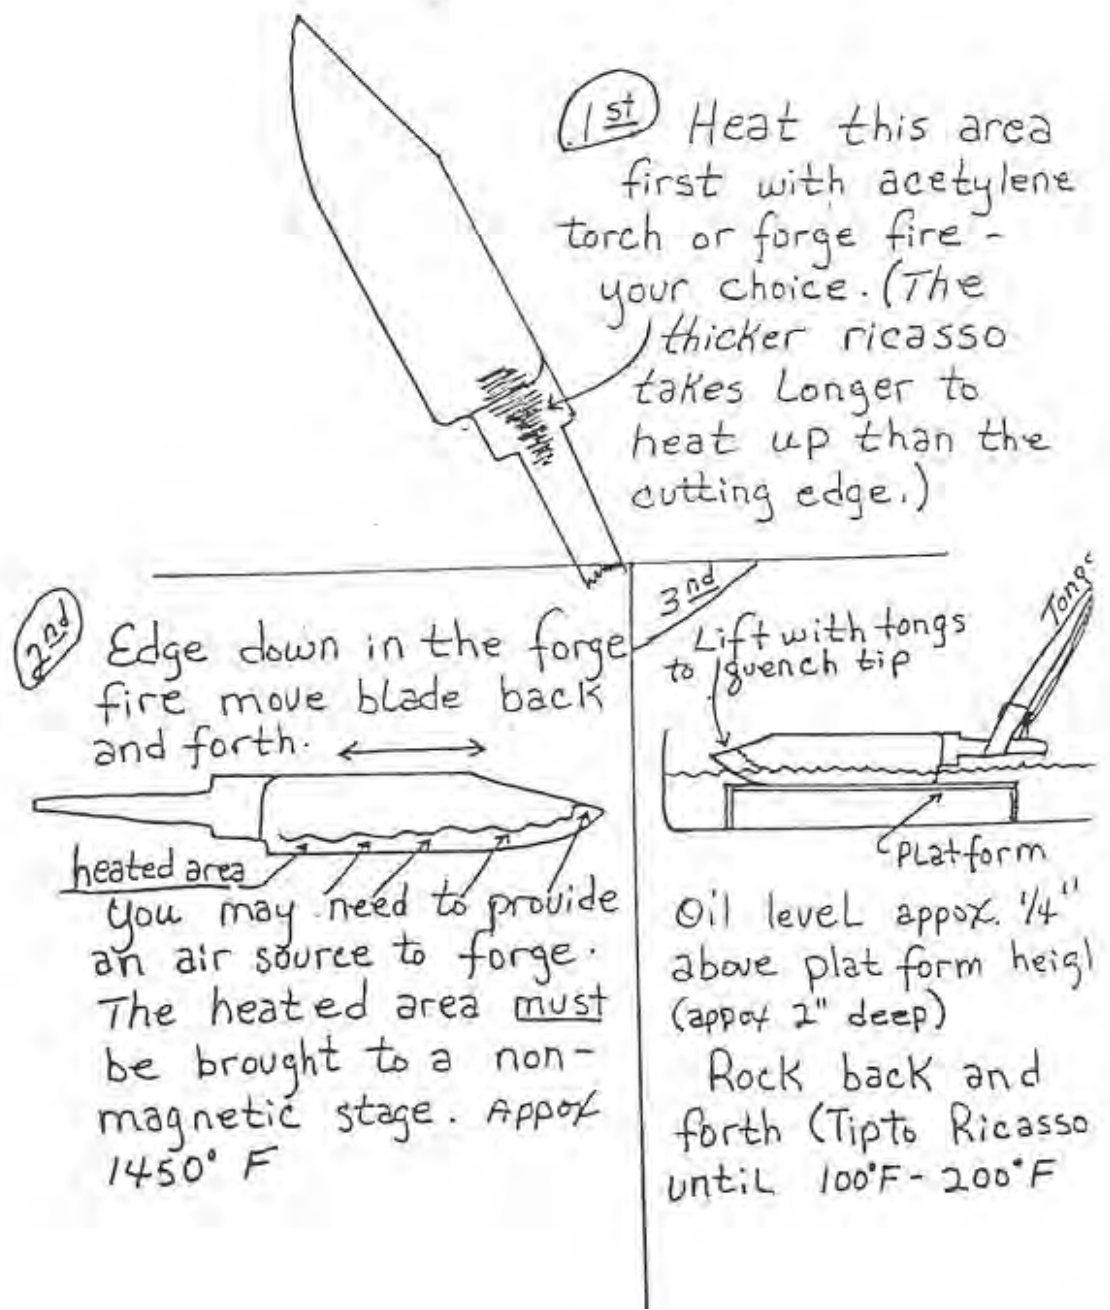 1st Heat this area
first with acetylene
torch or forge fire -
your choice. (The
thicker ricasso
takes Longer to
heat up than the
cutting edge.)
2nd Edge down in the forge
fire move blade back
and forth.
heated area
you may need to provide
an air source to forge.
The heated area must
be brought to a non-
magnetic stage. Appox
1450° F
3nd
Tongs
Lift with tongs
to quench tip
Platform
Oil level appox. 1/4"
above plat form heigl
(appox 2" deep)
Rock back and
forth (Tip to Ricasso
until 100°F - 200°F